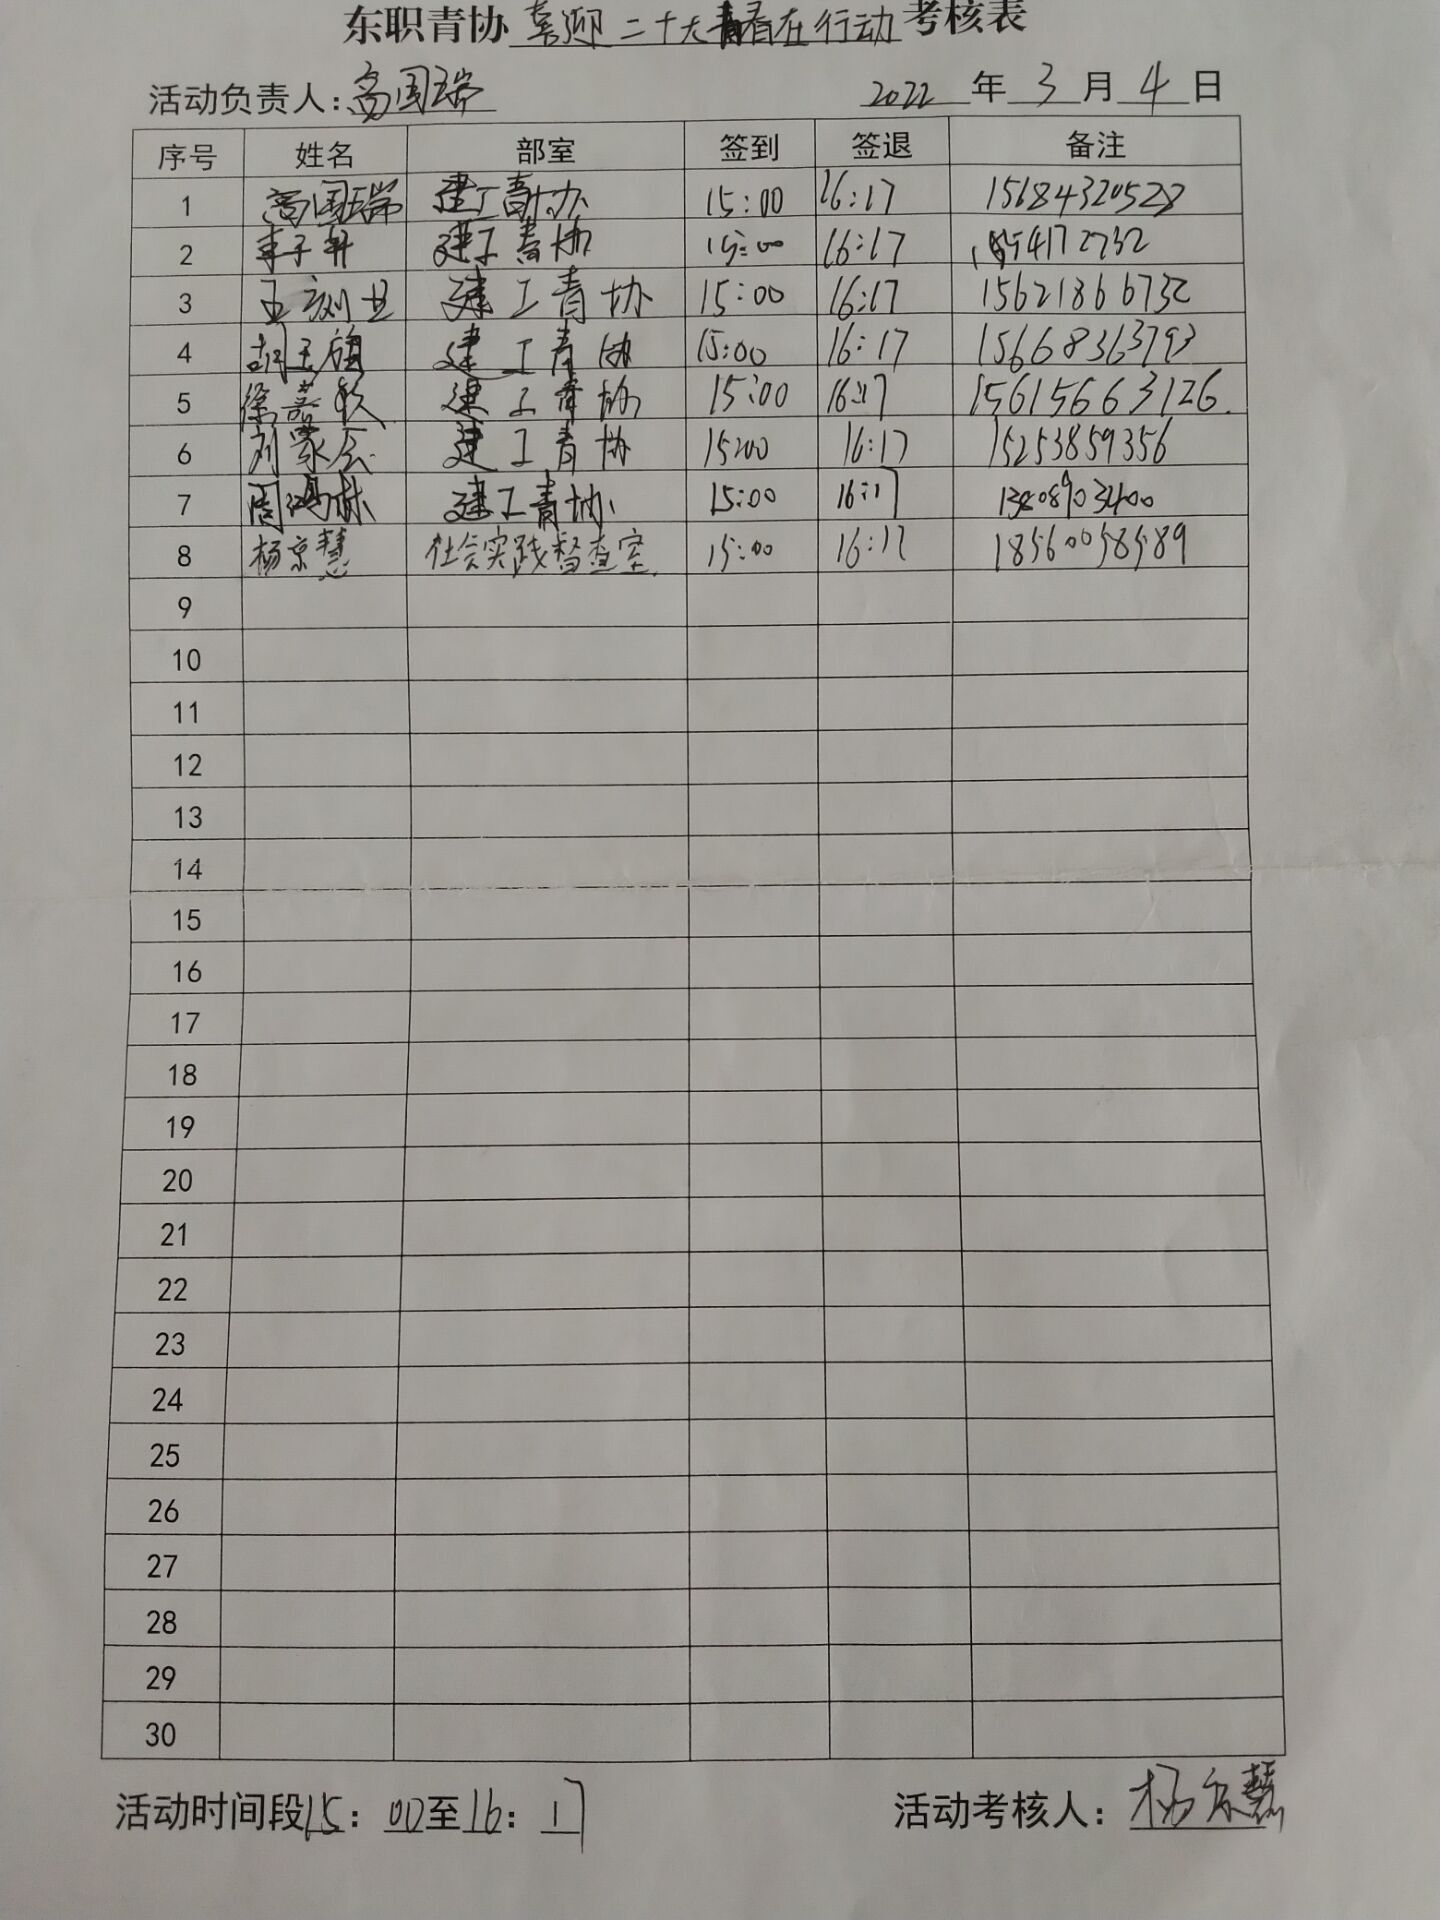 东职青协 喜迎二十大青春在行动 考核表
活动负责人：高国瑞 2022 年 3 月 4 日
序号 姓名 部室 签到 签退 备注
1 高国瑞 建工青协 15:00 16:17 15684320528
2 李子轩 建工青协 15:00 16:17
3 建工青协 15:00 16:17 15621866732
4 胡玉旗 建工青协 15:00 16:17 15668363793
5 徐嘉 建工青协 15:00 16:17 15615663126
6 刘家 建工青协 15:00 16:17 15253859356
7 周鸿林 建工青协 15:00 16:17
8 杨京慧 社会实践督查室 15:00 16:17 18560058589
9
10
11
12
13
14
15
16
17
18
19
20
21
22
23
24
25
26
27
28
29
30
活动时间段15：00至16：17 活动考核人：杨京慧